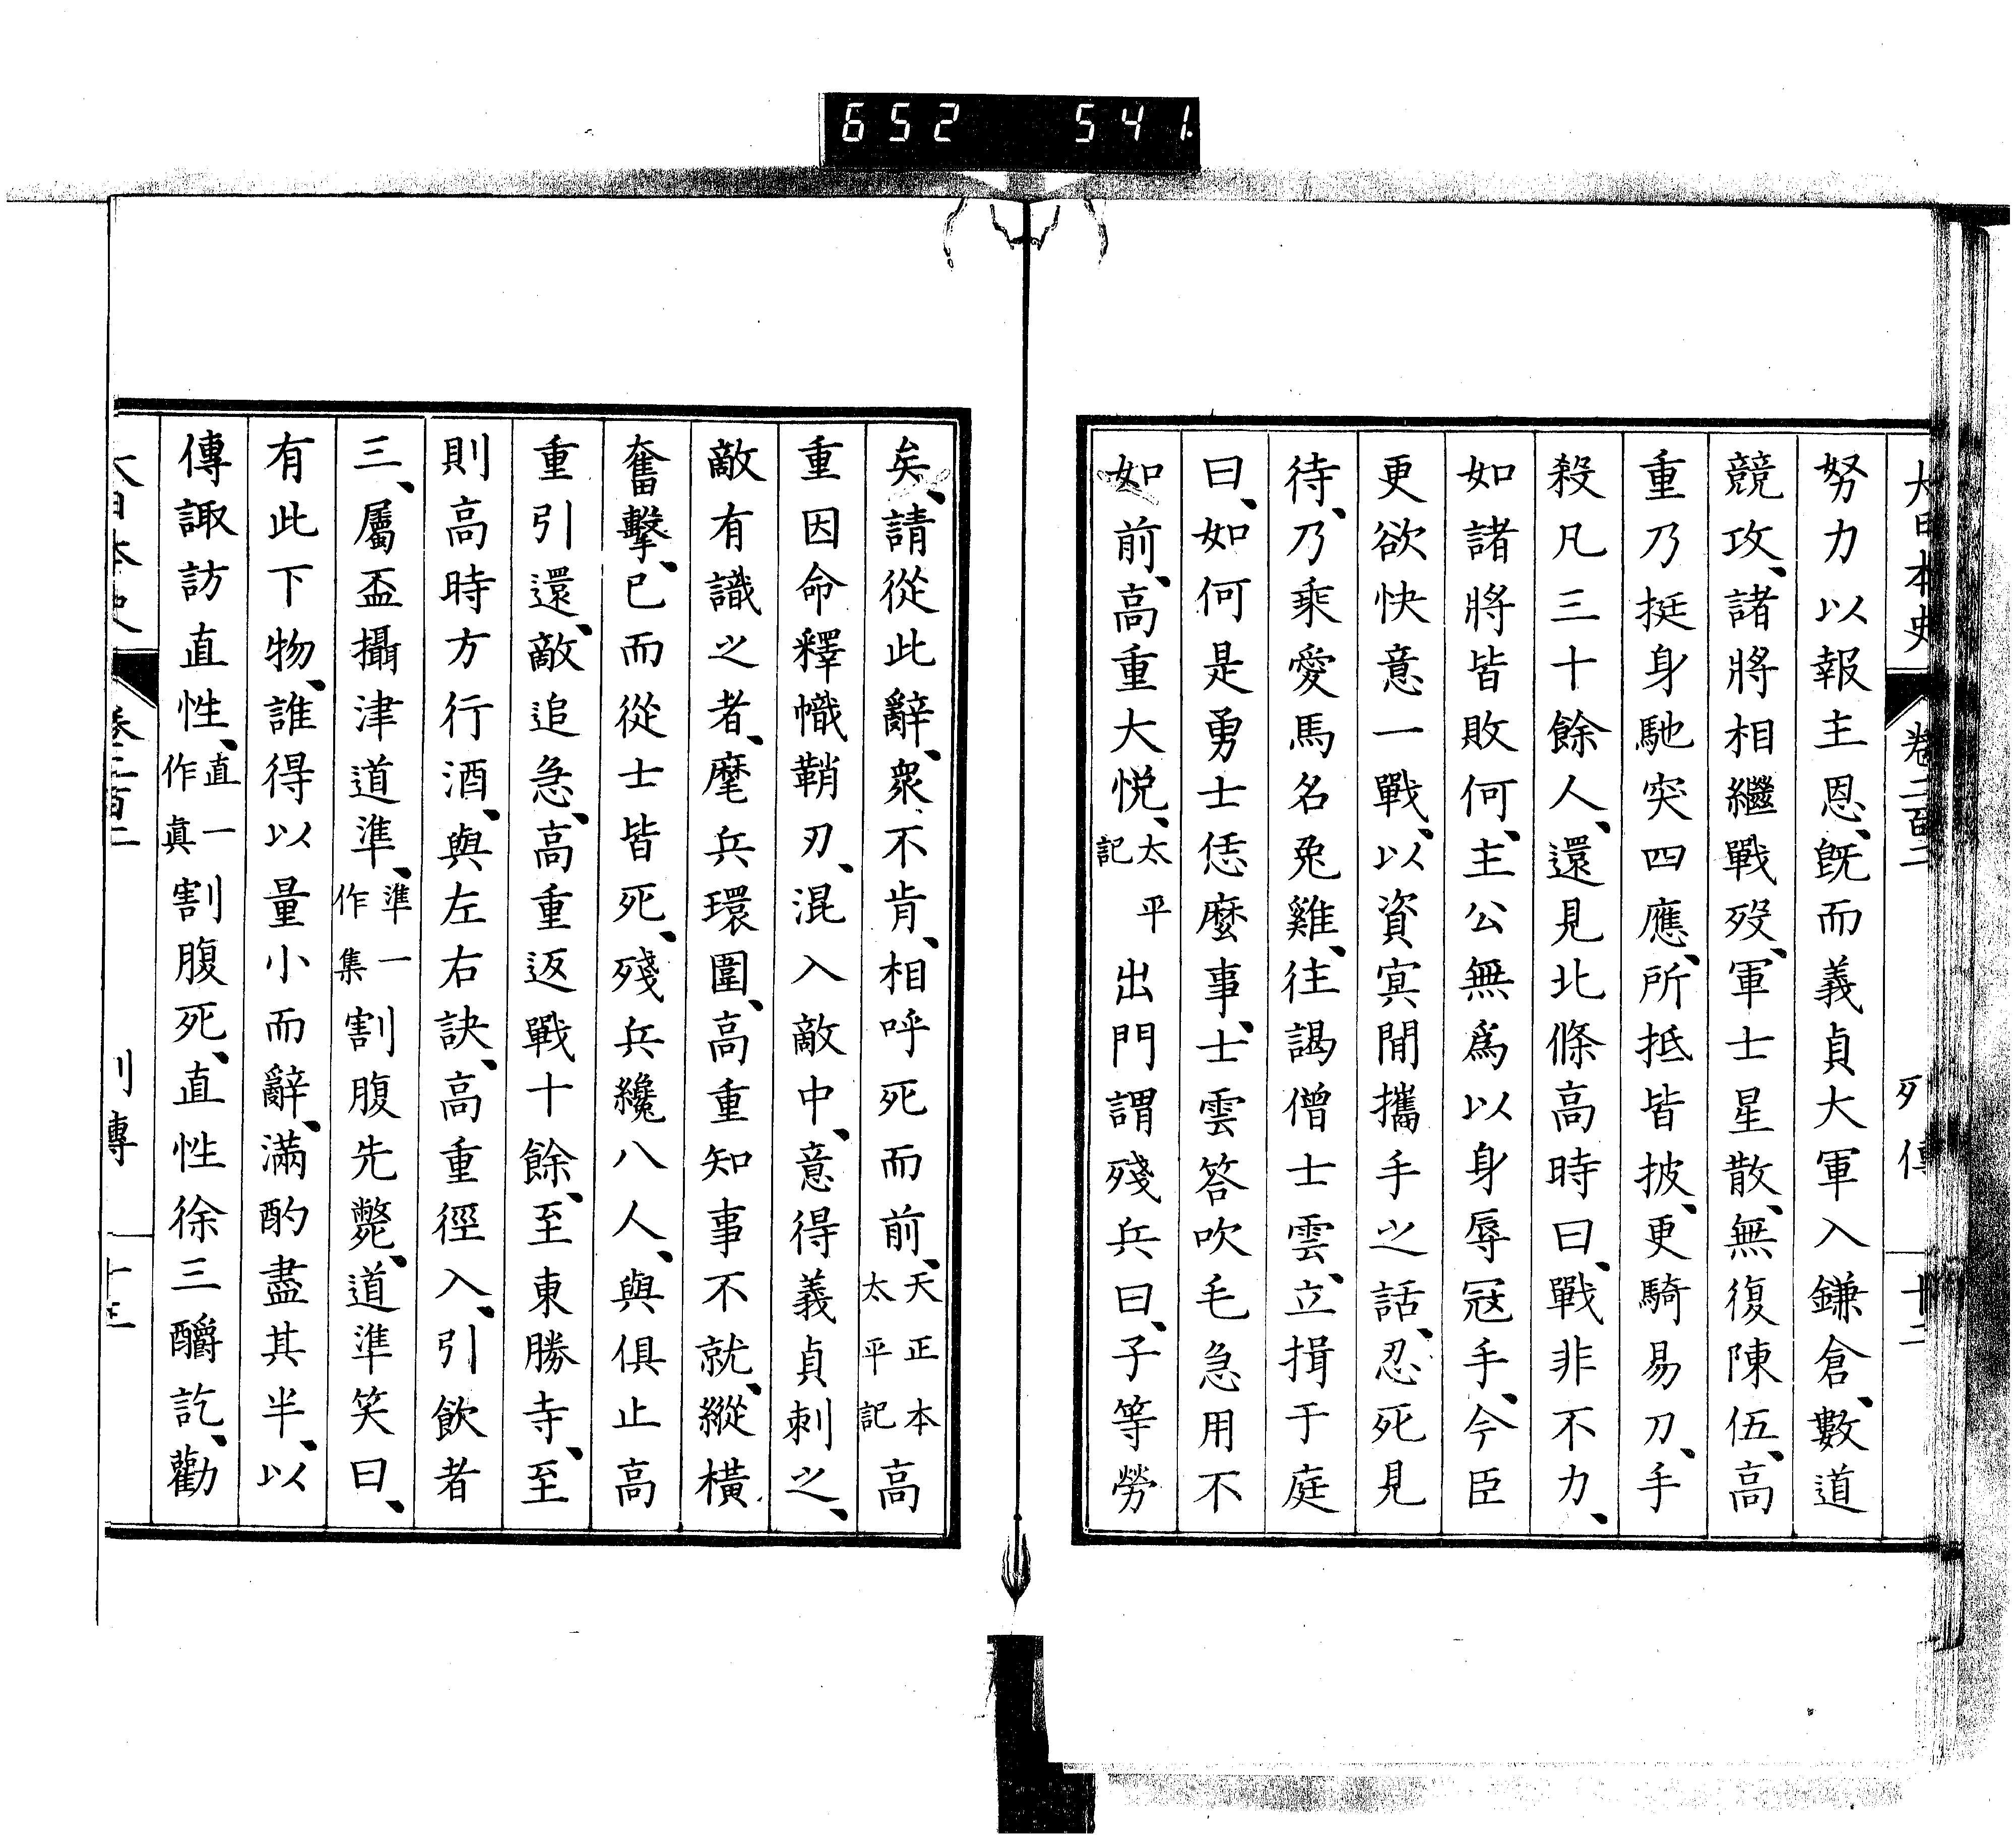 652 541.
大日本史 卷二百二 列傳 十二
努力以報主恩、旣而義貞大軍入鎌倉、數道
競攻、諸將相繼戰歿、軍士星散、無復陳伍、高
重乃挺身馳突四應、所抵皆披、更騎易刀、手
殺凡三十餘人、還見北條高時曰、戰非不力、
如諸將皆敗何、主公無爲以身辱冦手、今臣
更欲快意一戰、以資㝠閒攜手之話、忍死見
待、乃乘愛馬名兔雞、往謁僧士雲、立揖于庭
曰、如何是勇士恁麼事、士雲答吹毛急用不
如前、高重大悅、太平記出門謂殘兵曰、子等勞
矣、請從此辭、衆不肯、相呼死而前、天正本太平記高
重因命釋幟鞘刃、混入敵中、意得義貞刺之、
敵有識之者、麾兵環圍、高重知事不就、縱橫
奮擊、已而從士皆死、殘兵纔八人、與俱止高
重引還、敵追急、高重返戰十餘、至東勝寺、至
則高時方行酒、與左右訣、高重徑入、引飮者
三、屬盃攝津道準、準一作集割腹先斃、道準笑曰、
有此下物、誰得以量小而辭、滿酌盡其半、以
傳諏訪直性、直一作眞割腹死、直性徐三釂訖、勸
大日本史 卷二百二 列傳 十三